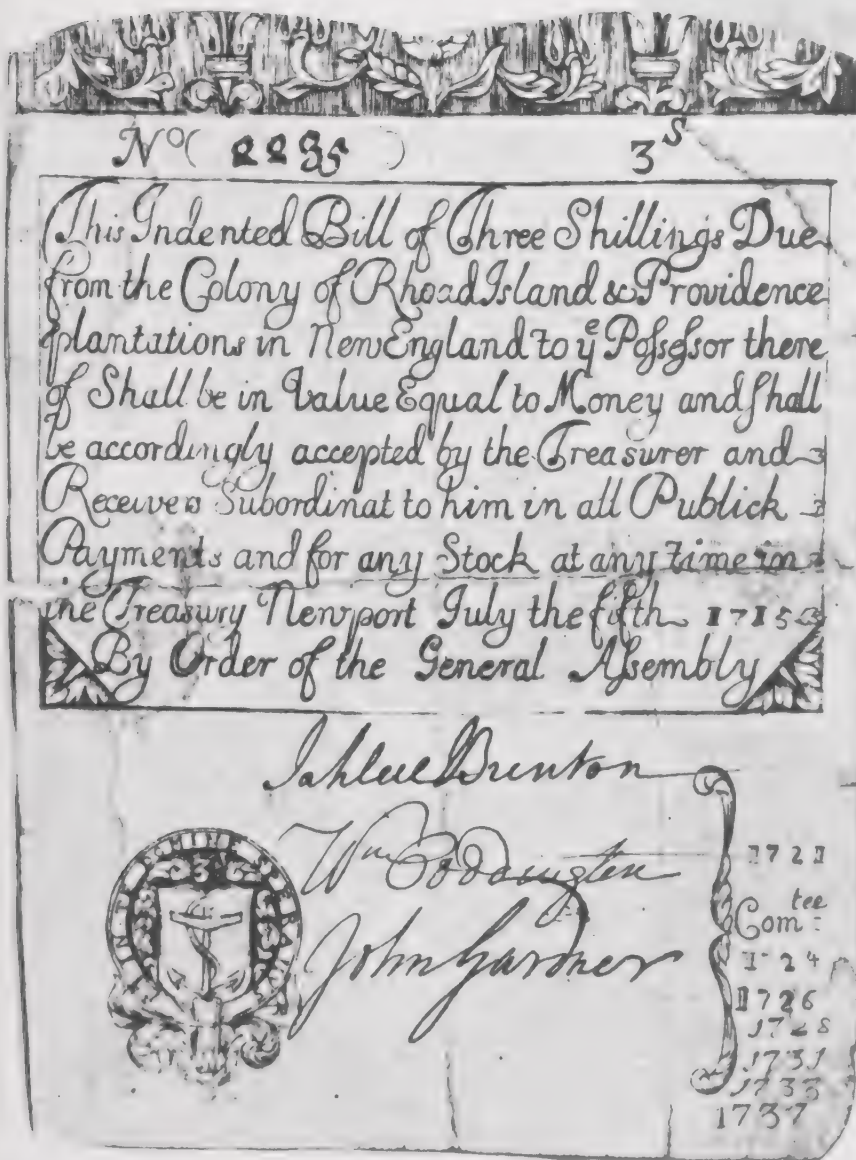 No( 2235 ) 3s
This Indented Bill of Three Shillings Due
from the Colony of Rhoad Island & Providence
plantations in New England to ye Possesor there
of Shall be in Value Equal to Money and shall
be accordingly accepted by the Treasurer and 3
Receivers Subordinat to him in all Publick 3
Payments and for any Stock at any time in 3
the Treasury Newport July the fifth 1715 3
By Order of the General Assembly
Jahleel Brenton
Wm Coddington
John Gardner
IN TE DOMINE SPERAMUS
3s
1721
Com tee :
1724
1726
1728
1731
1733
1737